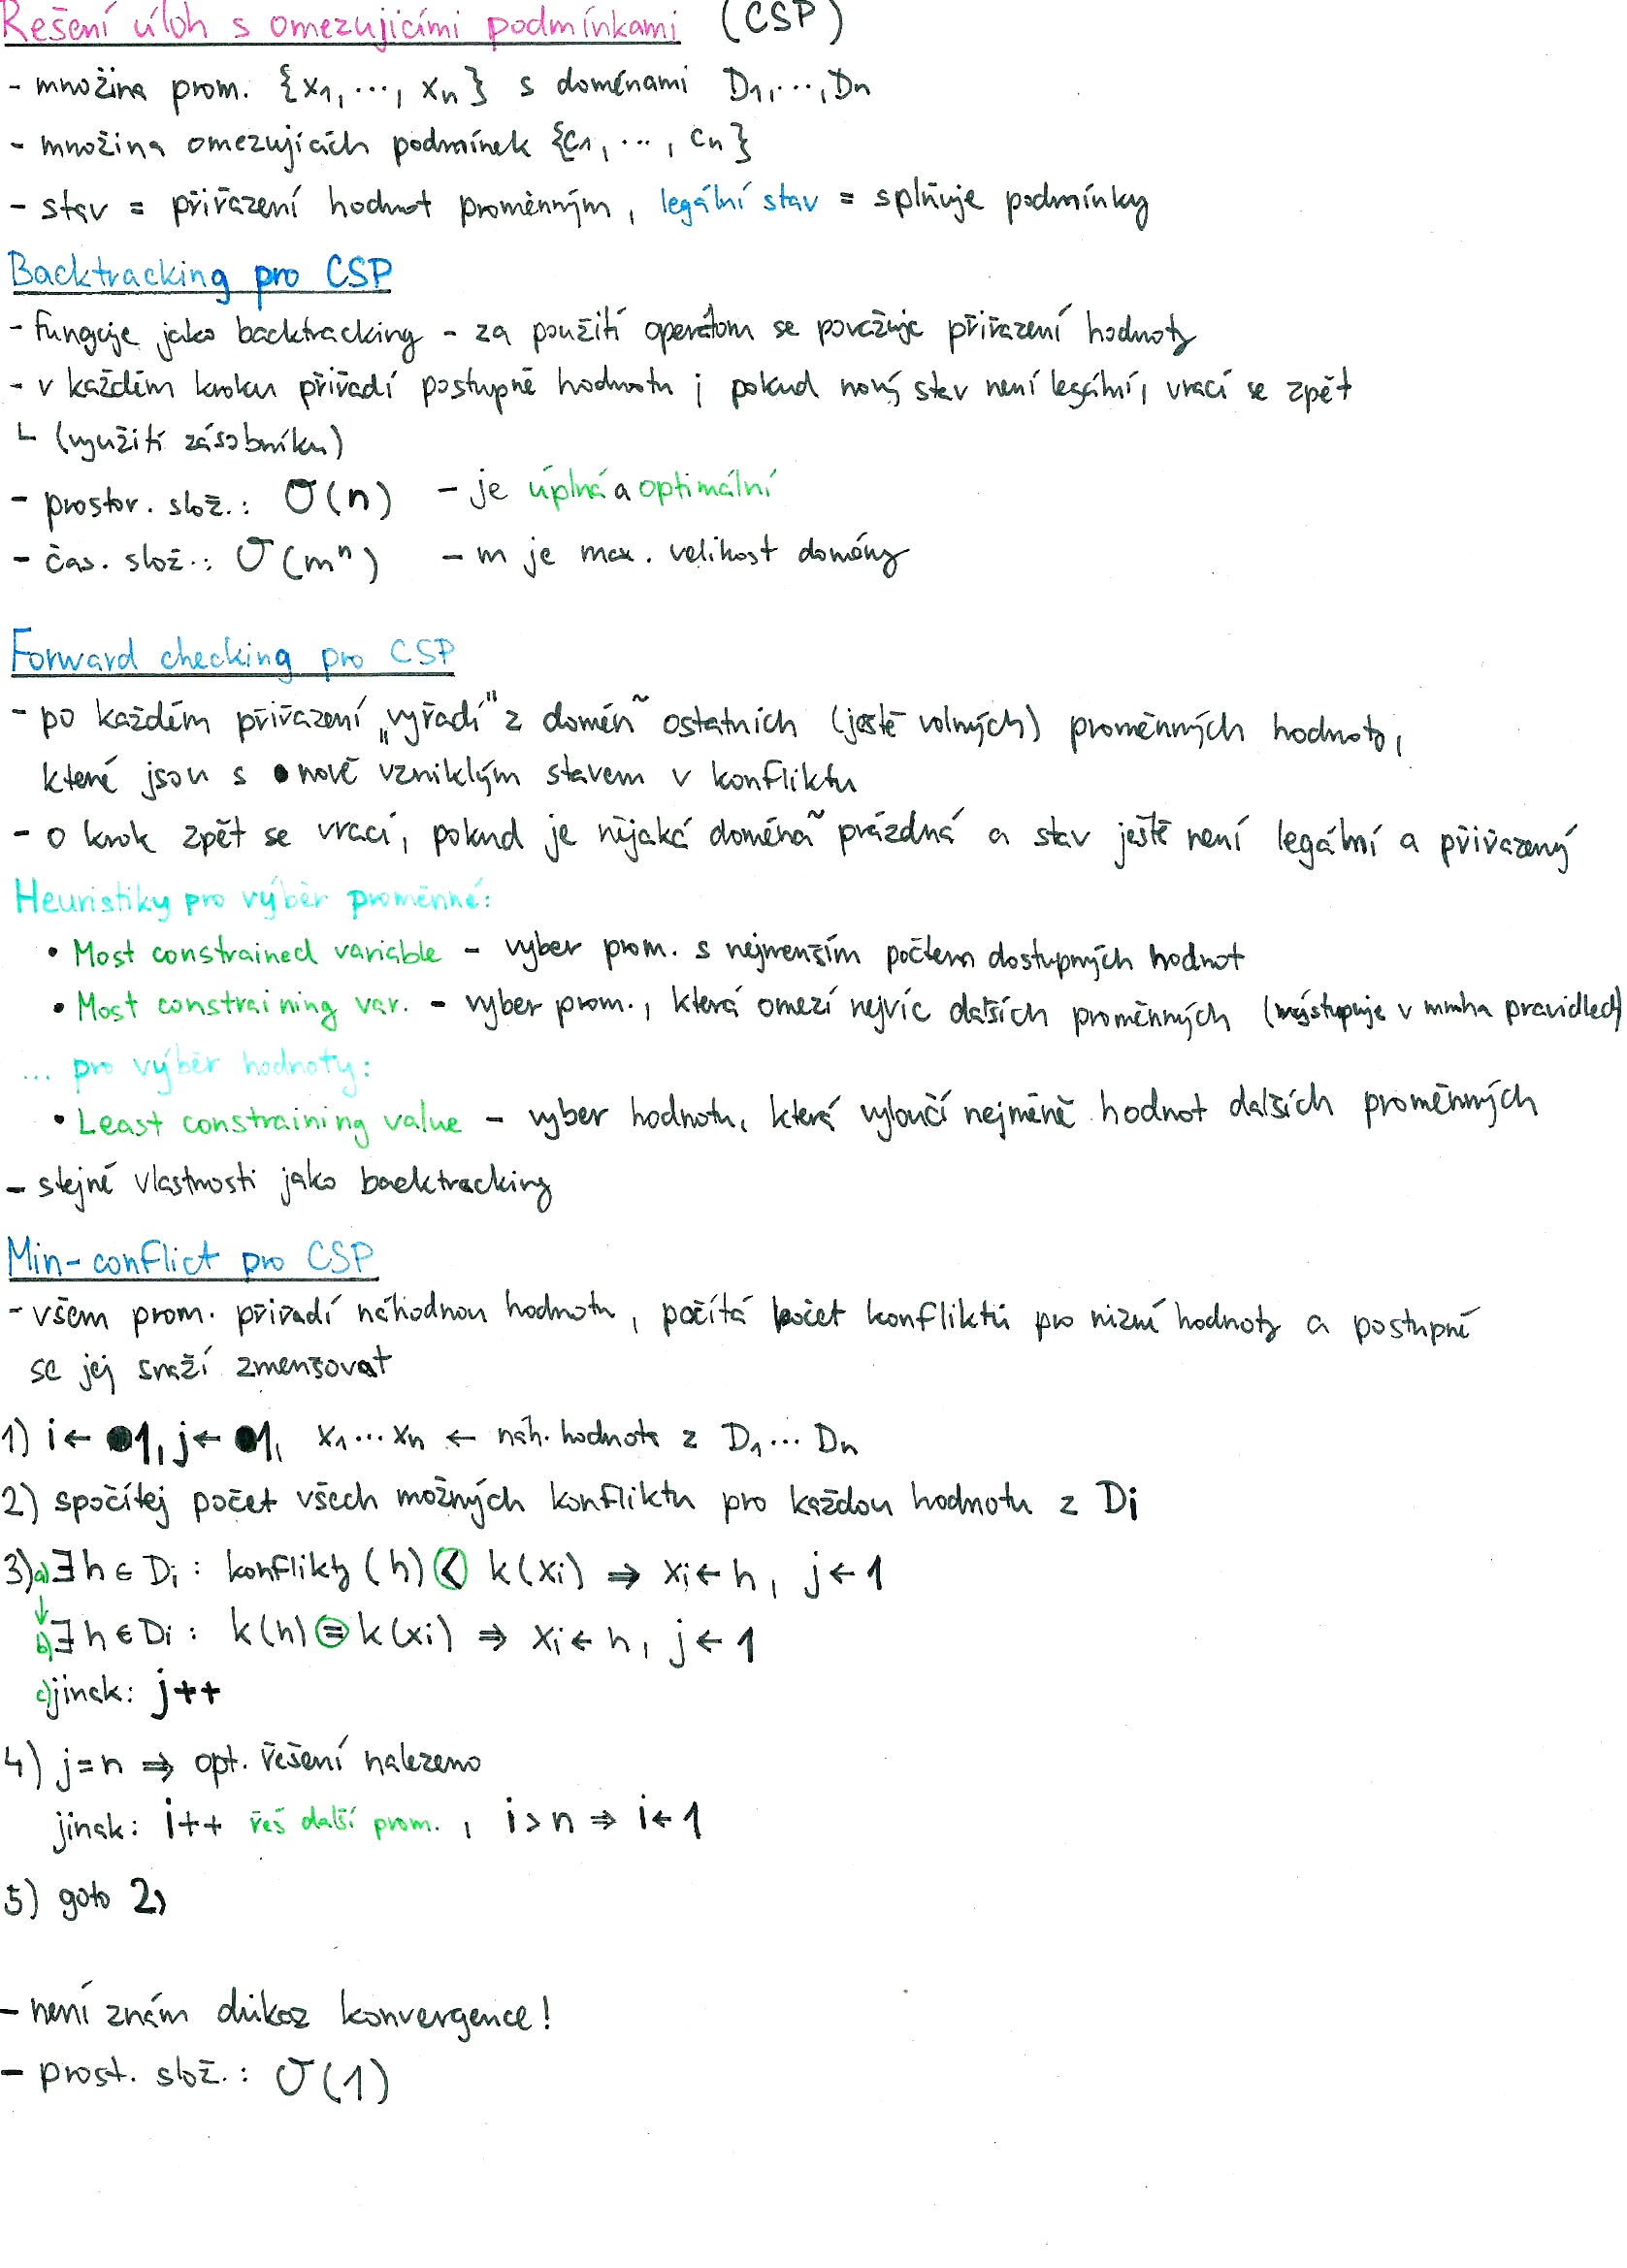 Řešení úloh s omezujícími podmínkami (CSP)
- množina prom. {x1, ..., xn} s doménami D1, ..., Dn
- množina omezujících podmínek {c1, ..., cn}
- stav = přiřazení hodnot proměnným, legální stav = splňuje podmínky
Backtracking pro CSP
- funguje jako backtracking - za použití operátoru se považuje přiřazení hodnoty
- v každém kroku přiřadí postupně hodnotu ; pokud nový stav není legální, vrací se zpět
└ (využití zásobníku)
- prostor. slož.: O(n) - je úplná a optimální
- čas. slož.: O(m^n) - m je max. velikost domény
Forward checking pro CSP
- po každém přiřazení „vyřadí" z domén ostatních (ještě volných) proměnných hodnoty,
které jsou s nově vzniklým stavem v konfliktu
- o krok zpět se vrací, pokud je nějaká doména prázdná a stav ještě není legální a přiřazený
Heuristiky pro výběr proměnné:
• Most constrained variable - vyber prom. s nejmenším počtem dostupných hodnot
• Most constraining var. - vyber prom., která omezí nejvíc dalších proměnných (vystupuje v mnoha pravidlech)
... pro výběr hodnoty:
• Least constraining value - vyber hodnotu, která vyloučí nejméně hodnot dalších proměnných
- stejné vlastnosti jako backtracking
Min-conflict pro CSP
- všem prom. přiřadí náhodnou hodnotu, počítá počet konfliktů pro různé hodnoty a postupně
se jej snaží zmenšovat
1) i ← 1, j ← 1, x1 ... xn ← náh. hodnota z D1 ... Dn
2) spočítej počet všech možných konfliktu pro každou hodnotu z Di
3) a) ∃ h ∈ Di : konflikty (h) < k(xi) ⇒ xi ← h, j ← 1
↓
b) ∃ h ∈ Di : k(h) = k(xi) ⇒ xi ← h, j ← 1
c) jinak: j++
4) j = n ⇒ opt. řešení nalezeno
jinak: i++ řeš další prom. , i > n ⇒ i ← 1
5) goto 2)
- není znám důkaz konvergence!
- prost. slož.: O(1)